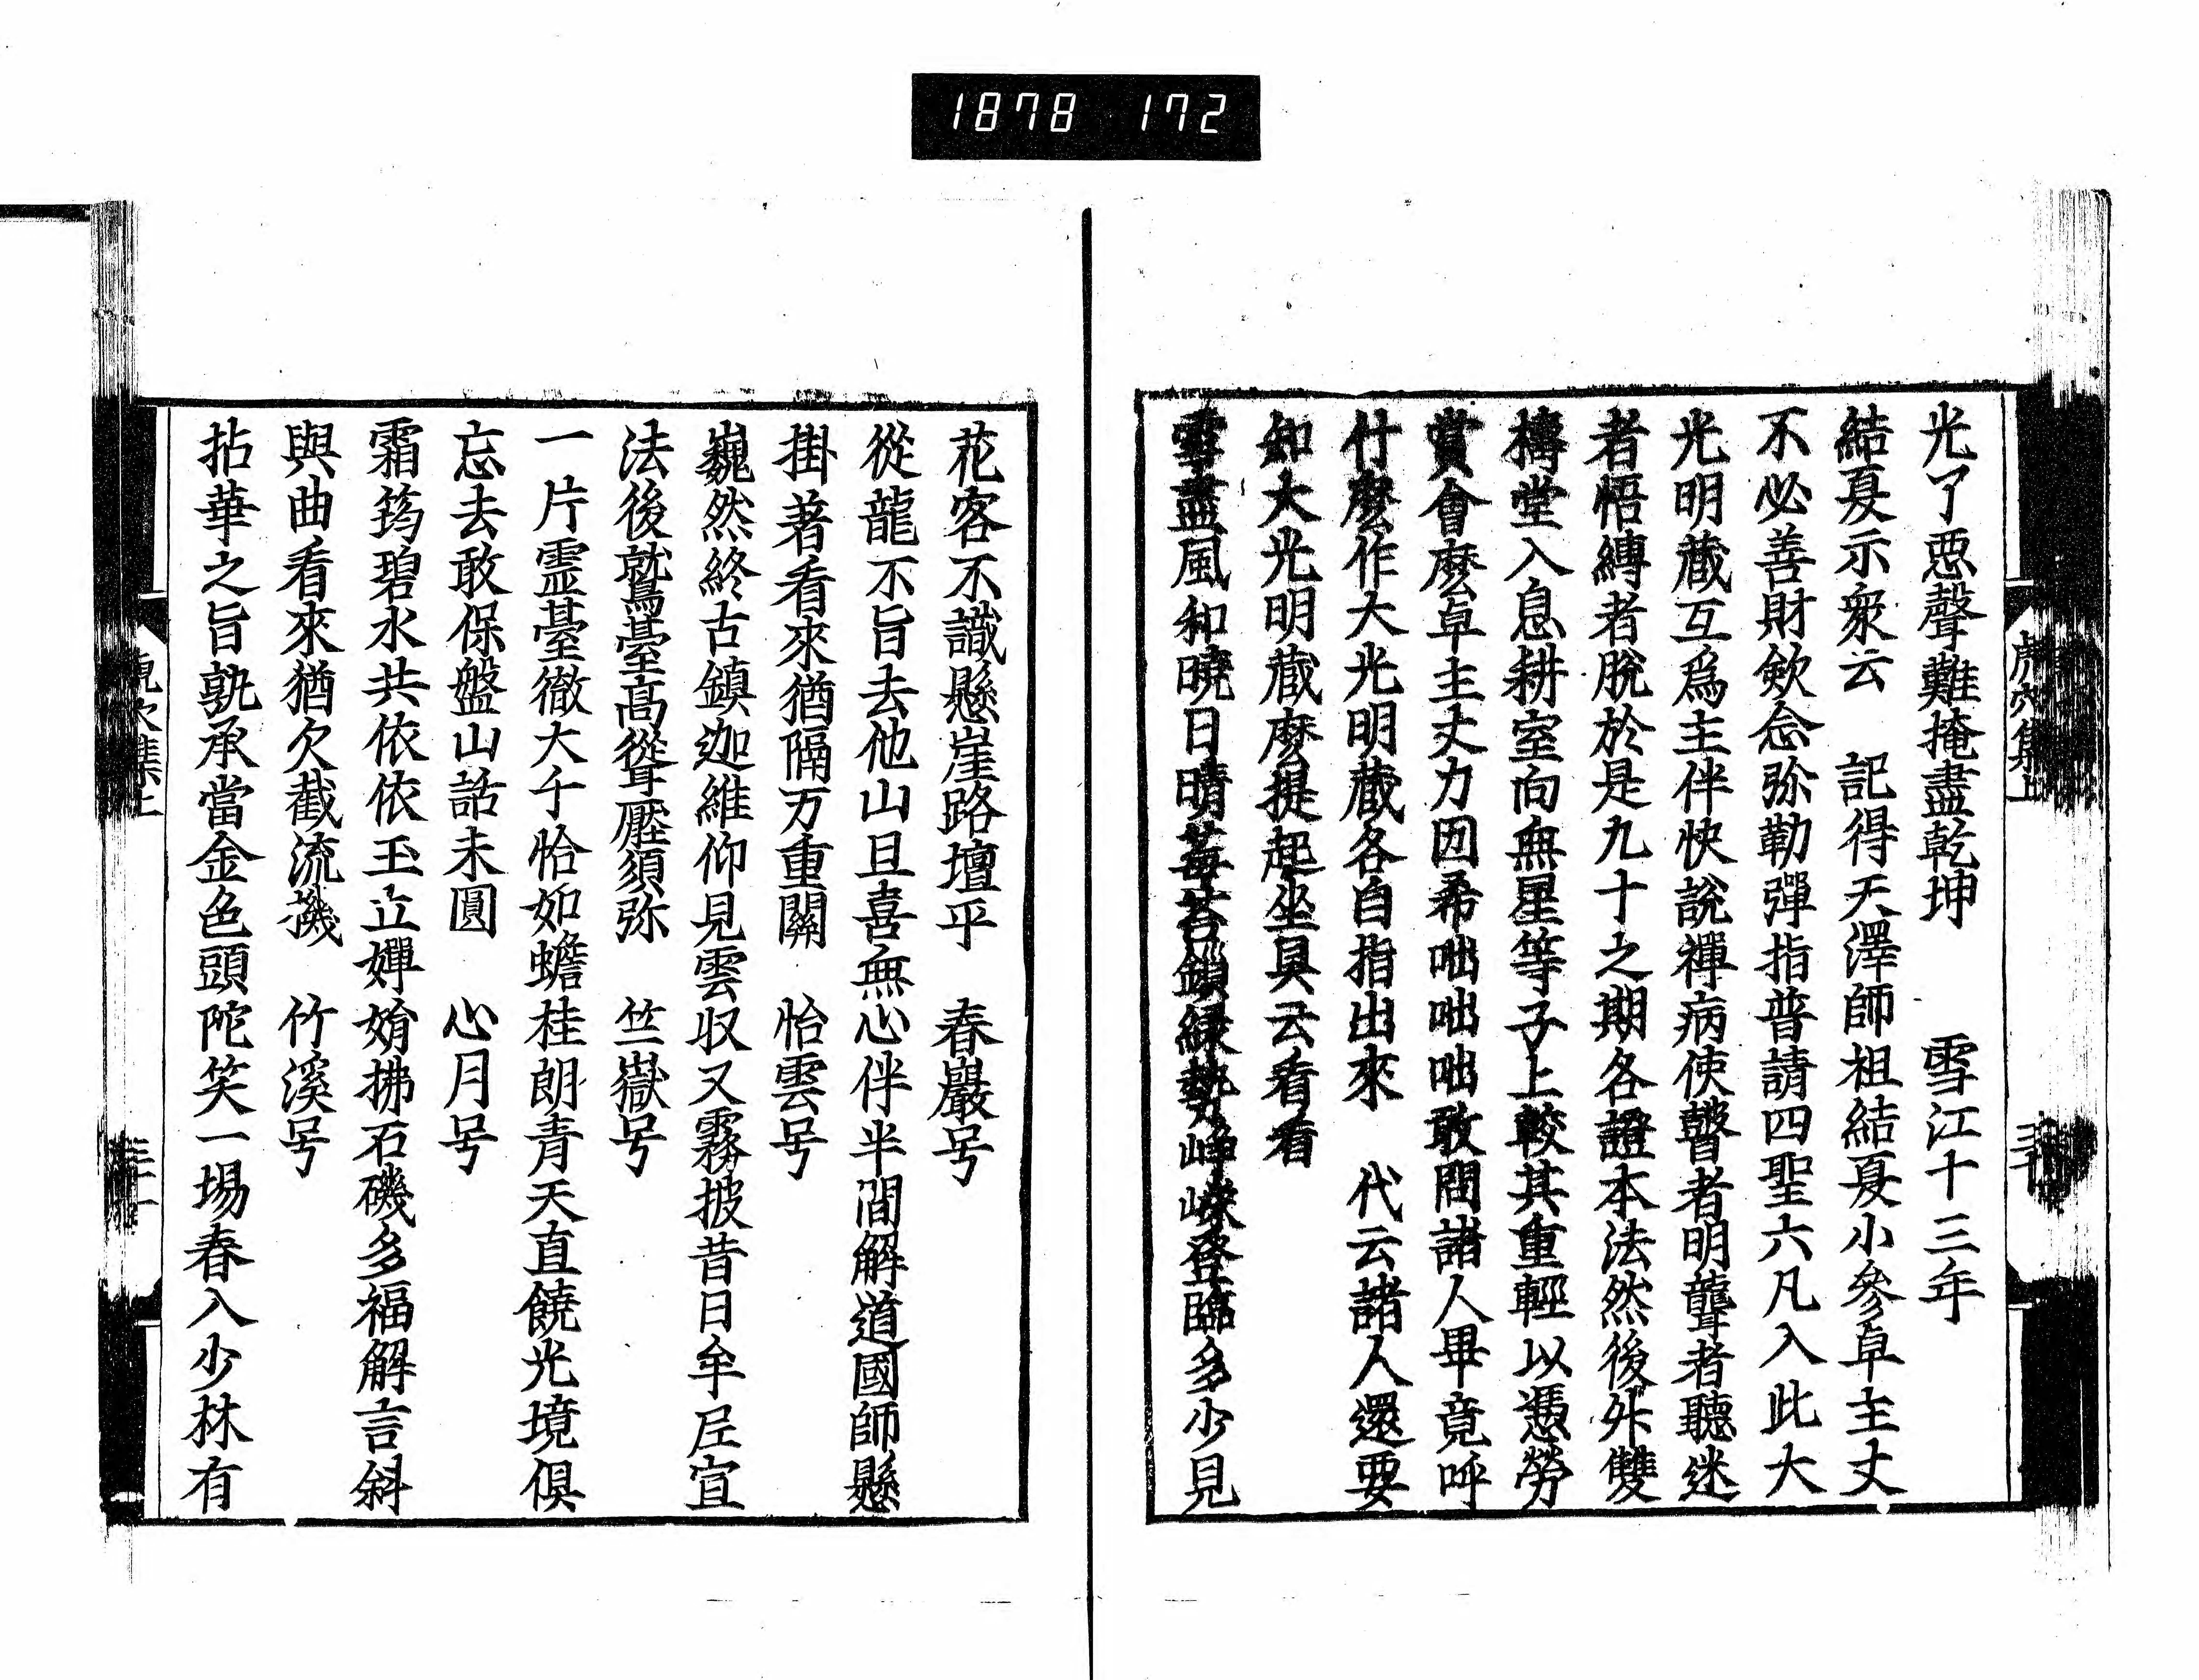 1878 172
光了惡聲難掩盡乾坤　雪江十三年
結夏示衆云　記得天澤師祖結夏小參卓主丈
不必善財欸念弥勒彈指普請四聖六凡入此大
光明藏互爲主伴快說禪病使瞽者明聾者聽迷
者悟縛者脫於是九十之期各證本法然後外雙
構堂入息耕室向無星等子上較其重輕以憑勞
賞會麼卓主丈力因希咄咄咄敢問諸人畢竟呼
什麼作大光明藏各自指出來　代云諸人還要
知大光明藏麼提起坐具云看看
雪盡風和曉日晴莓苔鎖綠勢崢嶸登臨多少見
虎穴集上
花客不識懸崖路壇平　春巖号
從龍不旨去他山且喜無心伴半間解道國師懸
掛著看來猶隔万重關　怡雲号
巍然終古鎮迦維仰見雲収又霧披昔日牟尼宣
法後鷲臺高聳壓須弥　竺嶽号
一片靈臺徹大千恰如蟾桂朗青天直饒光境俱
忘去敢保盤山話未圓　心月号
霜筠碧水共依依玉立嬋娟拂石磯多福解言斜
與曲看來猶欠截流機　竹溪号
拈華之旨孰承當金色頭陀笑一場春入少林有